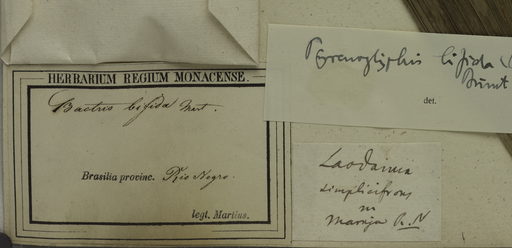 HERBARIUM REGIUM MONACENSE.
Bactris bifida Mart.
Brasilia provinc. Rio Negro.
legt. Martius.
Pyrenoglyphis bifida (
Burret
det.
Laodamia
simplicifrons
in